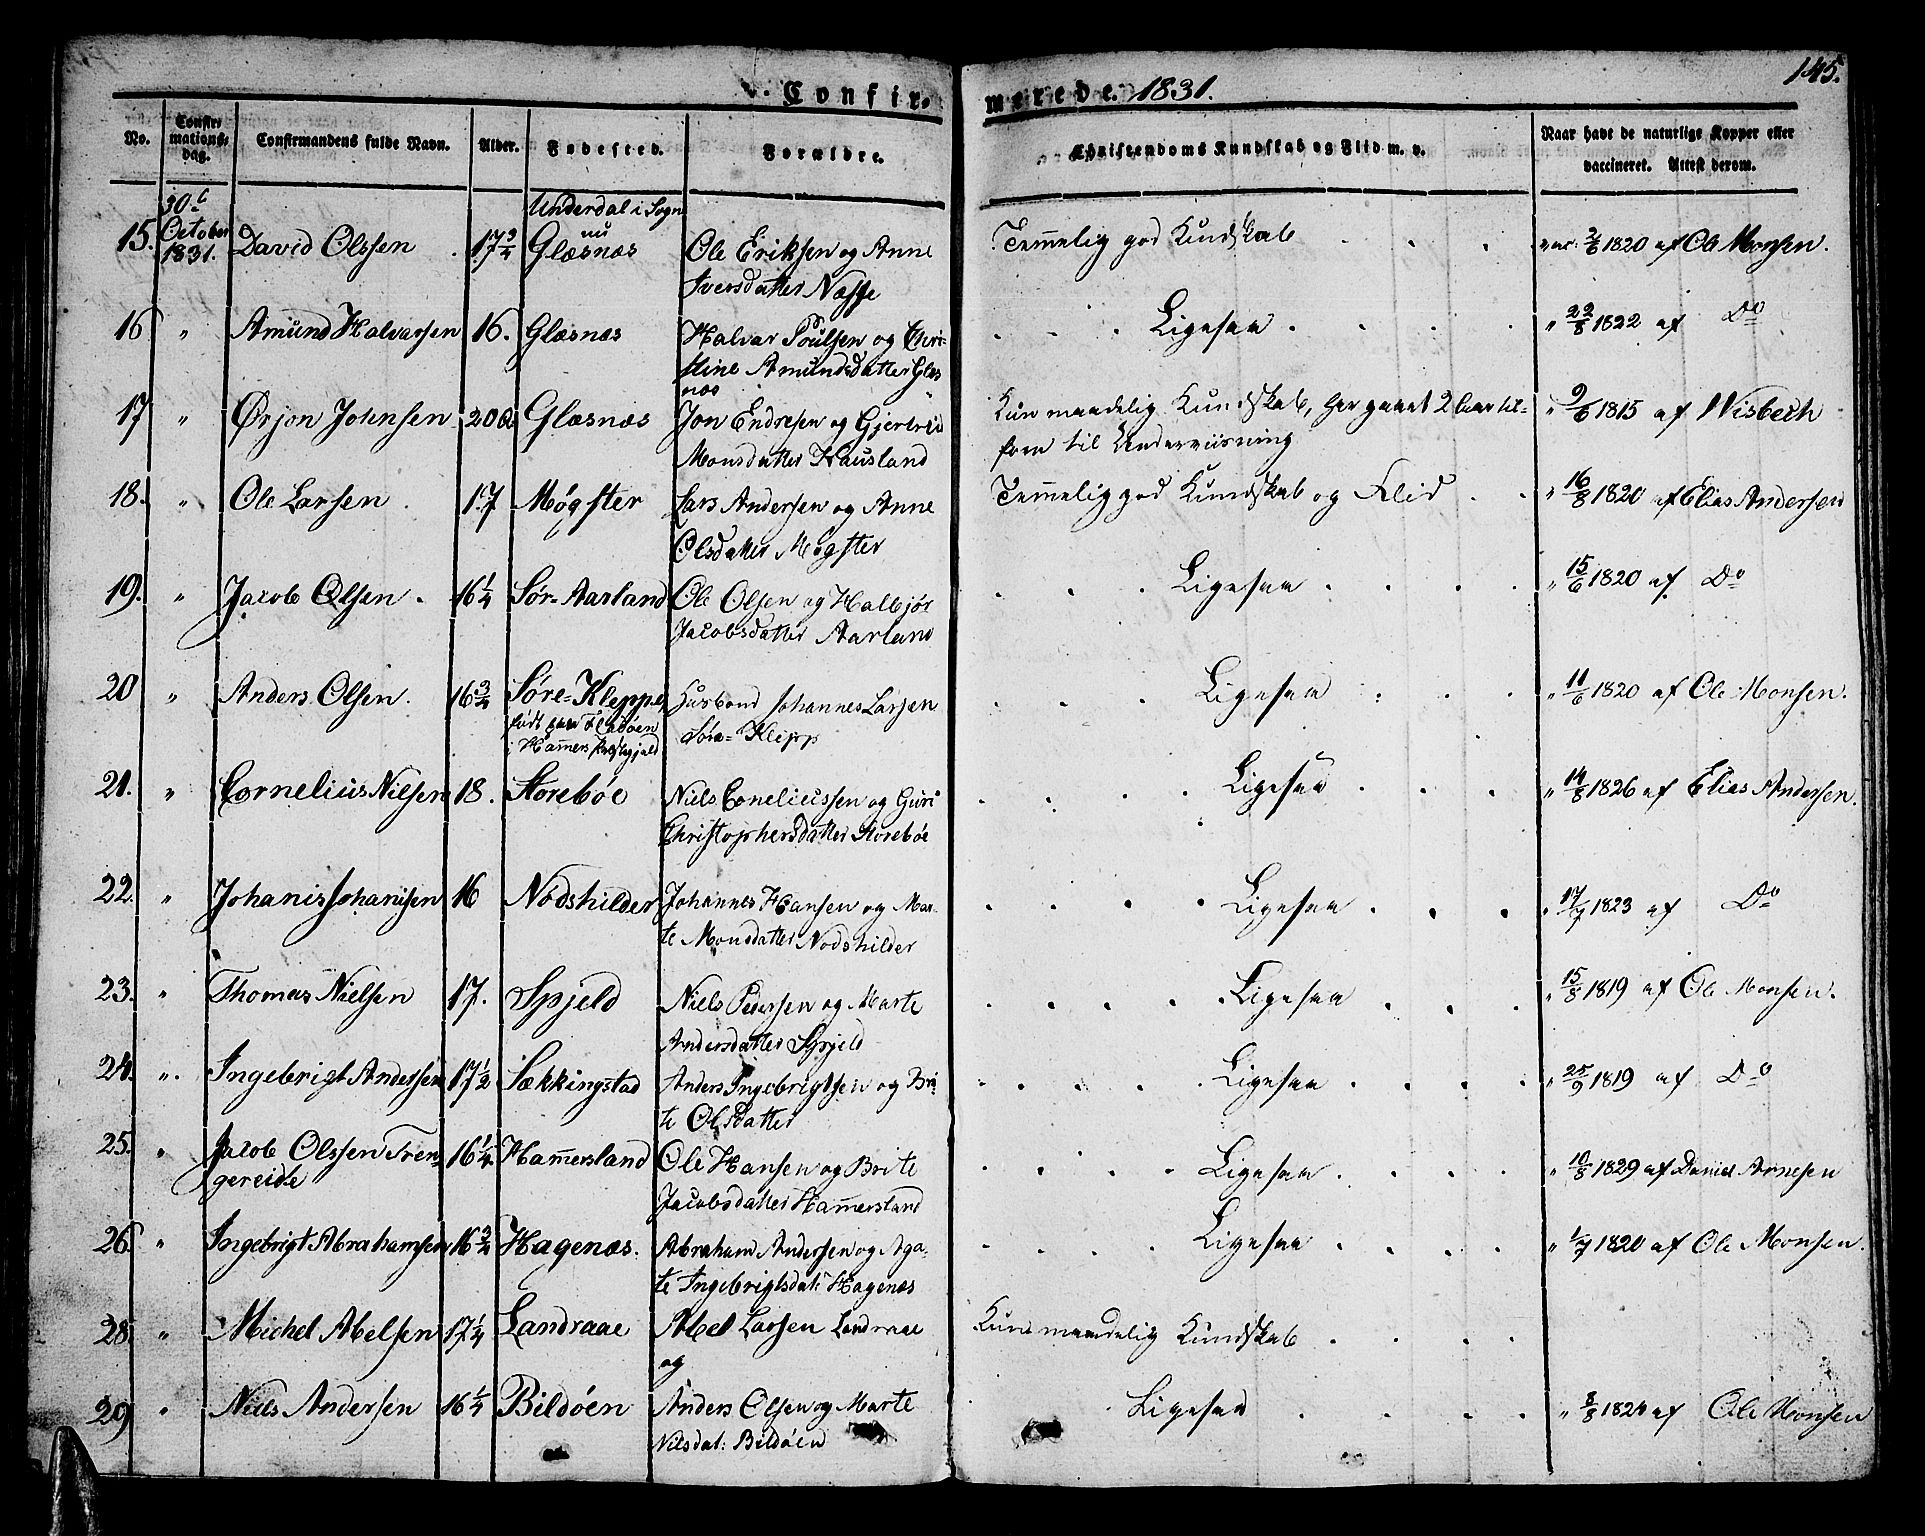 145.
Confirmerede. 1831.
No.
Confirmationsdag.
Confirmandens fulde Navn.
Alder.
Fødested.
Forældre.
Christendoms Kundskab og Flid m. v.
Naar havt de naturlige Kopper eller
vaccineret. Attest derom.
30.
October
1831.
Underdal i Sogn
nu
15. David Olssen . 17¾ Glæsnæs Ole Eriksen og Anne Temmelig god Kundskab . . . vac: 2/8 1820 af Ole Monsen.
Iversdatter Næsse
16 " Amund Halvarsen 16. Glæsnæs Halvar Poulsen og Chri- . . . Ligesaa . . . . " 22/8 1822 af Do
stine Amundsdatter Glæs
næs
17 " Ørjon Johnsen 20 Glæsnæs Jon Endresen og Gjertrud Kun maadelig Kundskab, har gaaet 2 Aar til- " 9/6 1815 af Wisbech
Monsdatter Hausland forn til Underviisning
18. " Ole Larsen . 17 Møgster Lars Andersen og Anne Temmelig god Kundskab og Flid . . " 16/8 1820 af Elias Andersen
Olsdatter Møgster
19. " Jacob Olsen . 16¼ Sør-Aarland Ole Olsen og Halbjør . . . Ligesaa . . . . " 15/6 1820 af Do
Jacobsdatter Aarland
20 " Anders Olsen. 16¾ Søre-Kleppe, Husbond Johannes Larsen . . . . Ligesaa . . . " 11/6 1820 af Ole Monsen.
født paa Fladøen Søre-Klepp
i Hamers Præstegjeld
21. " Cornelius Nilsen 18. Storebøe Niels Coneliussen og Guri . . . . Ligesaa . . . " 14/8 1826 af Elias Andersen.
Christophersdatter Storebøe
22. " Johanis Johanisen 16 Nodshilder Johannes Hansen og Mar- . . . . Ligesaa . . . " 17/7 1823 af Do
te Monsdatter Nodshilder
23. " Thomas Nielsen 17. Spjeld Niels Pedersen og Marte . . . . . Ligesaa . . . " 15/8 1819 af Ole Monsen.
Andersdatter Spjeld
24. " Ingebrigt Andersen 17½ Sækkingstad Anders Ingebrigtsen og Bri . . . . Ligesaa . . . . " 25/9 1819 af Do
te Olsdatter
25. " Jacob Olssen Tren- 16¼ Hamersland Ole Hansen og Brite . . . . Ligesaa . . . . " 10/8 1829 af Daniel Arnesen
gereide Jacobsdatter Hamersland
26. " Ingebrigt Abrahamsen 16¾ Hagenæs. Abraham Andersen og Aga- . . . . Ligesaa . . . . " 1/7 1820 af Ole Monsen.
te Ingebrigtsdat: Hagenæs
28. " Michel Abelsen 17¼ Landraae Abel Larsen Landraae Kun maadelig Kundskab . . . .
og
29 " Niels Andersen 16¼ Bildøen Anders Olsen og Marte . . . Ligesaa . . . . " 8/8 1824 af Ole Monsen
Nilsdat: Bildøen